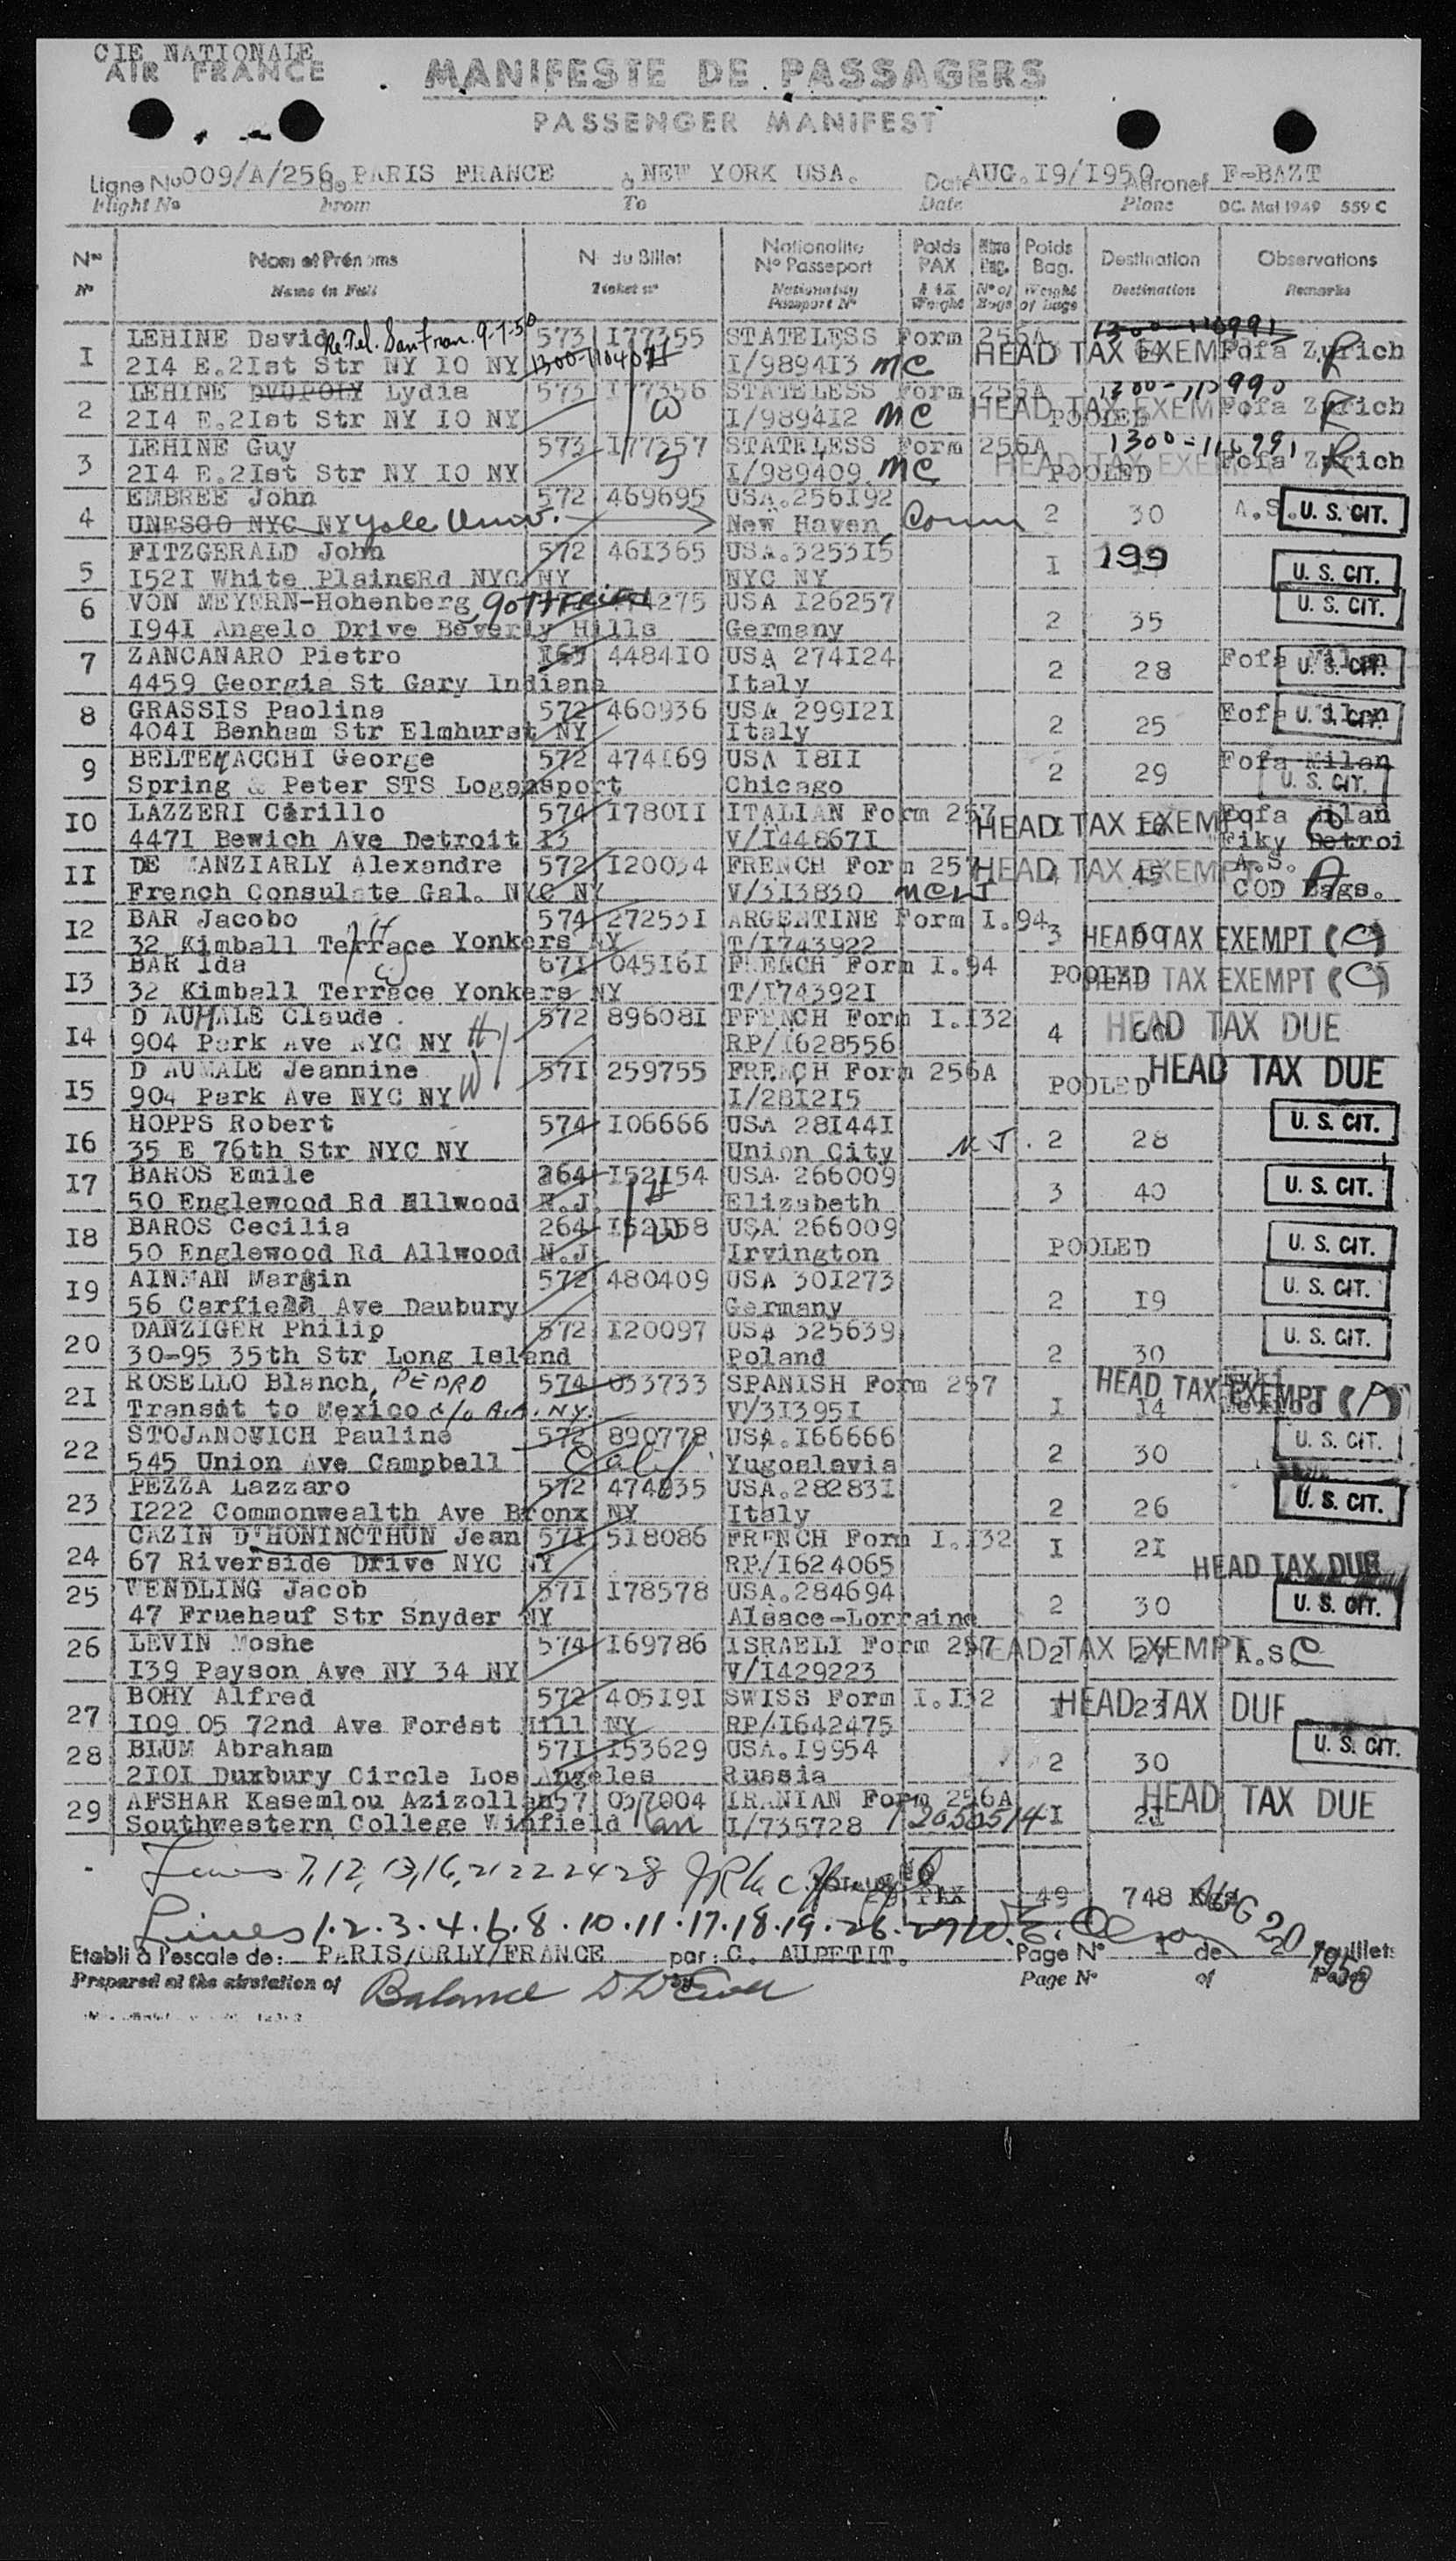 CIE NATIONALE
AIR FRANCE
MANIFESTE DE PASSAGERS
PASSENGER MANIFEST
Ligne No 009/A/256 de PARIS FRANCE à NEW YORK USA. Date AUG.I9/I950 Aéronef F-BAZT
Flight No From To Date Plane OC. Mai 1949 559 C
Nos Nom et Prénoms N du Billet Nationalité N° Passeport Poids PAX Nbre Bag. Poids Bag. Destination Observations
N° Name in Full Ticket n° Nationality Passport N° PAX Weight N° of Bags Weight of bags Destination Remarks
I LEHINE David Re Tel. San Fran. 9-7-50 573 I77355 STATELESS Form 256A
2I4 E.2Ist Str NY IO NY I/9894I3 MC HEAD TAX EXEMPT Fofa Zurich R
2 LEHINE Lydia 573 I77356 STATELESS Form 256A
2I4 E.2Ist Str NY IO NY W I/9894I2 MC HEAD TAX EXEMPT POOLED Fofa Zurich R
3 LEHINE Guy 573 I77357 STATELESS Form 256A
2I4 E.2Ist Str NY IO NY I/989409 MC HEAD TAX EXEMPT POOLED Fofa Zurich R
4 EMBREE John 572 469695 USA.256I92
UNESCO NYC NY Yale Univ. New Haven, Conn 2 30 A.S. U. S. CIT.
5 FITZGERALD John 572 46I365 USA.3253I5
I52I White PlainsRd NYC NY NYC NY I 199 U. S. CIT.
6 VON MEYERN-Hohenberg, GOTTFRIED USA I26257
I94I Angelo Drive Beverly Hills Germany 2 35 U. S. CIT.
7 ZANCANARO Pietro 4484I0 USA 274I24
4459 Georgia St Gary Indiana Italy 2 28 Fofa Milan U. S. CIT.
8 GRASSIS Paolina 572 460936 USA 299I2I
404I Benham Str Elmhurst NY Italy 2 25 Fofa Milan U. S. CIT.
9 BELTEMACCHI George 572 474I69 USA I8II
Spring & Peter STS Logansport Chicago 2 29 Fofa Milan U. S. CIT.
IO LAZZERI Cirillo 574 I780II ITALIAN Form 257
447I Bewich Ave Detroit I3 V/I44867I HEAD TAX EXEMPT Fofa Milan
II DE MANZIARLY Alexandre 572 I20034 FRENCH Form 257
French Consulate Gal. NYC NY V/3I3830 HEAD TAX EXEMPT 45 A.S. COD Bags.
I2 BAR Jacobo 574 27253I ARGENTINE Form I.94
32 Kimball Terrace Yonkers NY T/I743922 3 HEAD TAX EXEMPT (C)
I3 BAR Ida 67I 045I6I FRENCH Form I.94
32 Kimball Terrace Yonkers NY T/I74392I POOLED HEAD TAX EXEMPT (C)
I4 D AUMALE Claude 572 89608I FRENCH Form I.I32
904 Park Ave NYC NY H RP/I628556 4 HEAD TAX DUE
I5 D AUMALE Jeannine 57I 259755 FRENCH Form 256A
904 Park Ave NYC NY W I/28I2I5 POOLED HEAD TAX DUE
I6 HOPPS Robert 574 I06666 USA 28I44I
35 E 76th Str NYC NY Union City N.J. 2 28 U. S. CIT.
I7 BAROS Emile 264 I52I54 USA 266009
50 Englewood Rd Allwood N.J. H Elizabeth 3 40 U. S. CIT.
I8 BAROS Cecilia 264 I52I58 USA 266009
50 Englewood Rd Allwood N.J. W Irvington POOLED U. S. CIT.
I9 AINMAN Martin 572 480409 USA 30I273
56 Garfield Ave Daubury Germany 2 I9 U. S. CIT.
20 DANZIGER Philip 572 I20097 USA 325639
30-95 35th Str Long Island Poland 2 30 U. S. CIT.
2I ROSELLO Blanch, PEDRO 574 033733 SPANISH Form 257
Transit to Mexico c/o A.A. N.Y. V/3I395I I I4 HEAD TAX EXEMPT (A)
22 STOJANOVICH Pauline 572 890778 USA.I66666
545 Union Ave Campbell Calif Yugoslavia 2 30 U. S. CIT.
23 PEZZA Lazzaro 572 USA.28283I
I222 Commonwealth Ave Bronx NY Italy 2 26 U. S. CIT.
24 CAZIN D'HONINCTHUN Jean 57I 518086 FRENCH Form I.I32
67 Riverside Drive NYC NY RP/I624065 I 2I HEAD TAX DUE
25 WENDLING Jacob 57I I78578 USA.284694
47 Fruehauf Str Snyder NY Alsace-Lorraine 2 30 U. S. CIT.
26 LEVIN Moshe 574 I69786 ISRAELI Form 257
I39 Payson Ave NY 34 NY V/I429223 2 HEAD TAX EXEMPT A.S. C
27 BOHY Alfred 572 405I9I SWISS Form I.I32
I09 05 72nd Ave Forést Hill NY RP/I642475 I 23 HEAD TAX DUE
28 BLUM Abraham 57I I53629 USA.I9954
2I0I Duxbury Circle Los Angeles Russia 2 30 U. S. CIT.
29 AFSHAR Kasemlou Azizollah 57 037004 IRANIAN Form 256A
Southwestern College Winfield Kan I/735728 I 2I HEAD TAX DUE
Lines 7, 12, 13, 16, 21 22 24 28
PAX 49 748 Kgs
Lines 1.2.3.4.6.8.10.11.17.18.19.26.27 AUG 20 1950
Etabli à l'escale de: PARIS/ORLY/FRANCE par: C. AUPETIT. Page N° I de feuillets
Prepared at the airstation of by Page N° of Pages
Balance